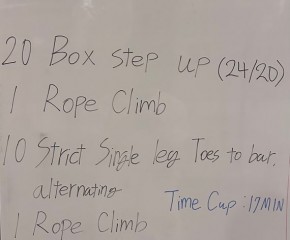 20 Box step up (24/20)
1 Rope Climb
10 Strict Single leg Toes to bar.
alternating
Time Cap : 17 MIN
1 Rope Climb